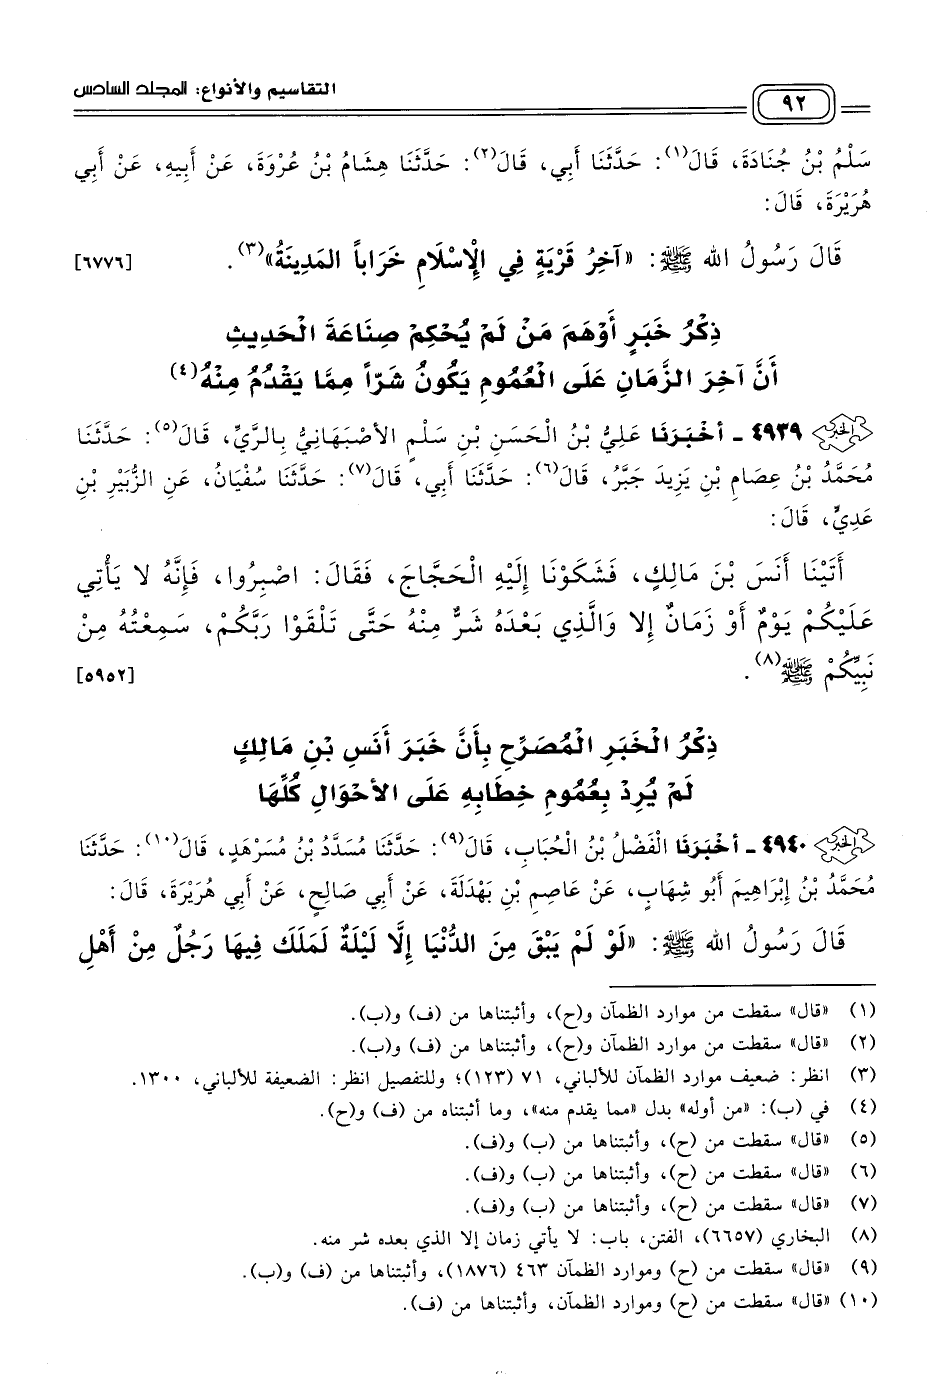 التقاسيم والأنواع: المجلد السادس
٩٢
سَلْمُ بْنُ جُنَادَةَ، قَالَ(١): حَدَّثَنَا أَبِي، قَالَ(٢): حَدَّثَنَا هِشَامُ بْنُ عُرْوَةَ، عَنْ أَبِيهِ، عَنْ أَبِي
هُرَيْرَةَ، قَالَ:
قَالَ رَسُولُ الله ﷺ: «آخِرُ قَرْيَةٍ فِي الْإِسْلَامِ خَرَاباً المَدِينَةُ»(٣). [٦٧٧٦]
ذِكْرُ خَبَرٍ أَوْهَمَ مَنْ لَمْ يُحْكِمْ صِنَاعَةَ الْحَدِيثِ
أَنَّ آخِرَ الزَّمَانِ عَلَى الْعُمُومِ يَكُونُ شَرّاً مِمَّا يَقْدُمُ مِنْهُ(٤)
الخبر ٤٩٣٩ - أَخْبَرَنَا عَلِيُّ بْنُ الْحَسَنِ بْنِ سَلْمٍ الأَصْبَهَانِيُّ بِالرَّيِّ، قَالَ(٥): حَدَّثَنَا
مُحَمَّدُ بْنُ عِصَامِ بْنِ يَزِيدَ جَبَّرُ، قَالَ(٦): حَدَّثَنَا أَبِي، قَالَ(٧): حَدَّثَنَا سُفْيَانُ، عَنِ الزُّبَيْرِ بْنِ
عَدِيٍّ، قَالَ:
أَتَيْنَا أَنَسَ بْنَ مَالِكٍ، فَشَكَوْنَا إِلَيْهِ الْحَجَّاجَ، فَقَالَ: اصْبِرُوا، فَإِنَّهُ لا يَأْتِي
عَلَيْكُمْ يَوْمٌ أَوْ زَمَانٌ إِلا وَالَّذِي بَعْدَهُ شَرٌّ مِنْهُ حَتَّى تَلْقَوْا رَبَّكُمْ، سَمِعْتُهُ مِنْ
نَبِيِّكُمْ ﷺ(٨). [٥٩٥٢]
ذِكْرُ الْخَبَرِ الْمُصَرِّحِ بِأَنَّ خَبَرَ أَنَسِ بْنِ مَالِكٍ
لَمْ يُرِدْ بِعُمُومِ خِطَابِهِ عَلَى الأَحْوَالِ كُلِّهَا
الخبر ٤٩٤٠ - أَخْبَرَنَا الْفَضْلُ بْنُ الْحُبَابِ، قَالَ(٩): حَدَّثَنَا مُسَدَّدُ بْنُ مُسَرْهَدٍ، قَالَ(١٠): حَدَّثَنَا
مُحَمَّدُ بْنُ إِبْرَاهِيمَ أَبُو شِهَابٍ، عَنْ عَاصِمِ بْنِ بَهْدَلَةَ، عَنْ أَبِي صَالِحٍ، عَنْ أَبِي هُرَيْرَةَ، قَالَ:
قَالَ رَسُولُ الله ﷺ: «لَوْ لَمْ يَبْقَ مِنَ الدُّنْيَا إِلَّا لَيْلَةٌ لَمَلَكَ فِيهَا رَجُلٌ مِنْ أَهْلِ
(١) «قال» سقطت من موارد الظمآن و(ح)، وأثبتناها من (ف) و(ب).
(٢) «قال» سقطت من موارد الظمآن و(ح)، وأثبتناها من (ف) و(ب).
(٣) انظر: ضعيف موارد الظمآن للألباني، ٧١ (١٢٣)؛ وللتفصيل انظر: الضعيفة للألباني، ١٣٠٠.
(٤) في (ب): «من أوله» بدل «مما يقدم منه»، وما أثبتناه من (ف) و(ح).
(٥) «قال» سقطت من (ح)، وأثبتناها من (ب) و(ف).
(٦) «قال» سقطت من (ح)، وأثبتناها من (ب) و(ف).
(٧) «قال» سقطت من (ح)، وأثبتناها من (ب) و(ف).
(٨) البخاري (٦٦٥٧)، الفتن، باب: لا يأتي زمان إلا الذي بعده شر منه.
(٩) «قال» سقطت من (ح) وموارد الظمآن ٤٦٣ (١٨٧٦)، وأثبتناها من (ف) و(ب).
(١٠) «قال» سقطت من (ح) وموارد الظمآن، وأثبتناها من (ف).